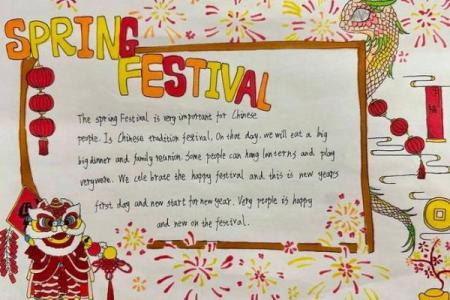 SPRING
FESTIVAL
The spring Festival is very important for Chinese
people. Is Chinese tradition festival. On that day, we will eat a big
big dinner and family reunion. Some people can hang lanterns and play
verywere. We celebrate the happy festival and this is new year's
first day and new start for new year. Very people is happy
and new on the festival.